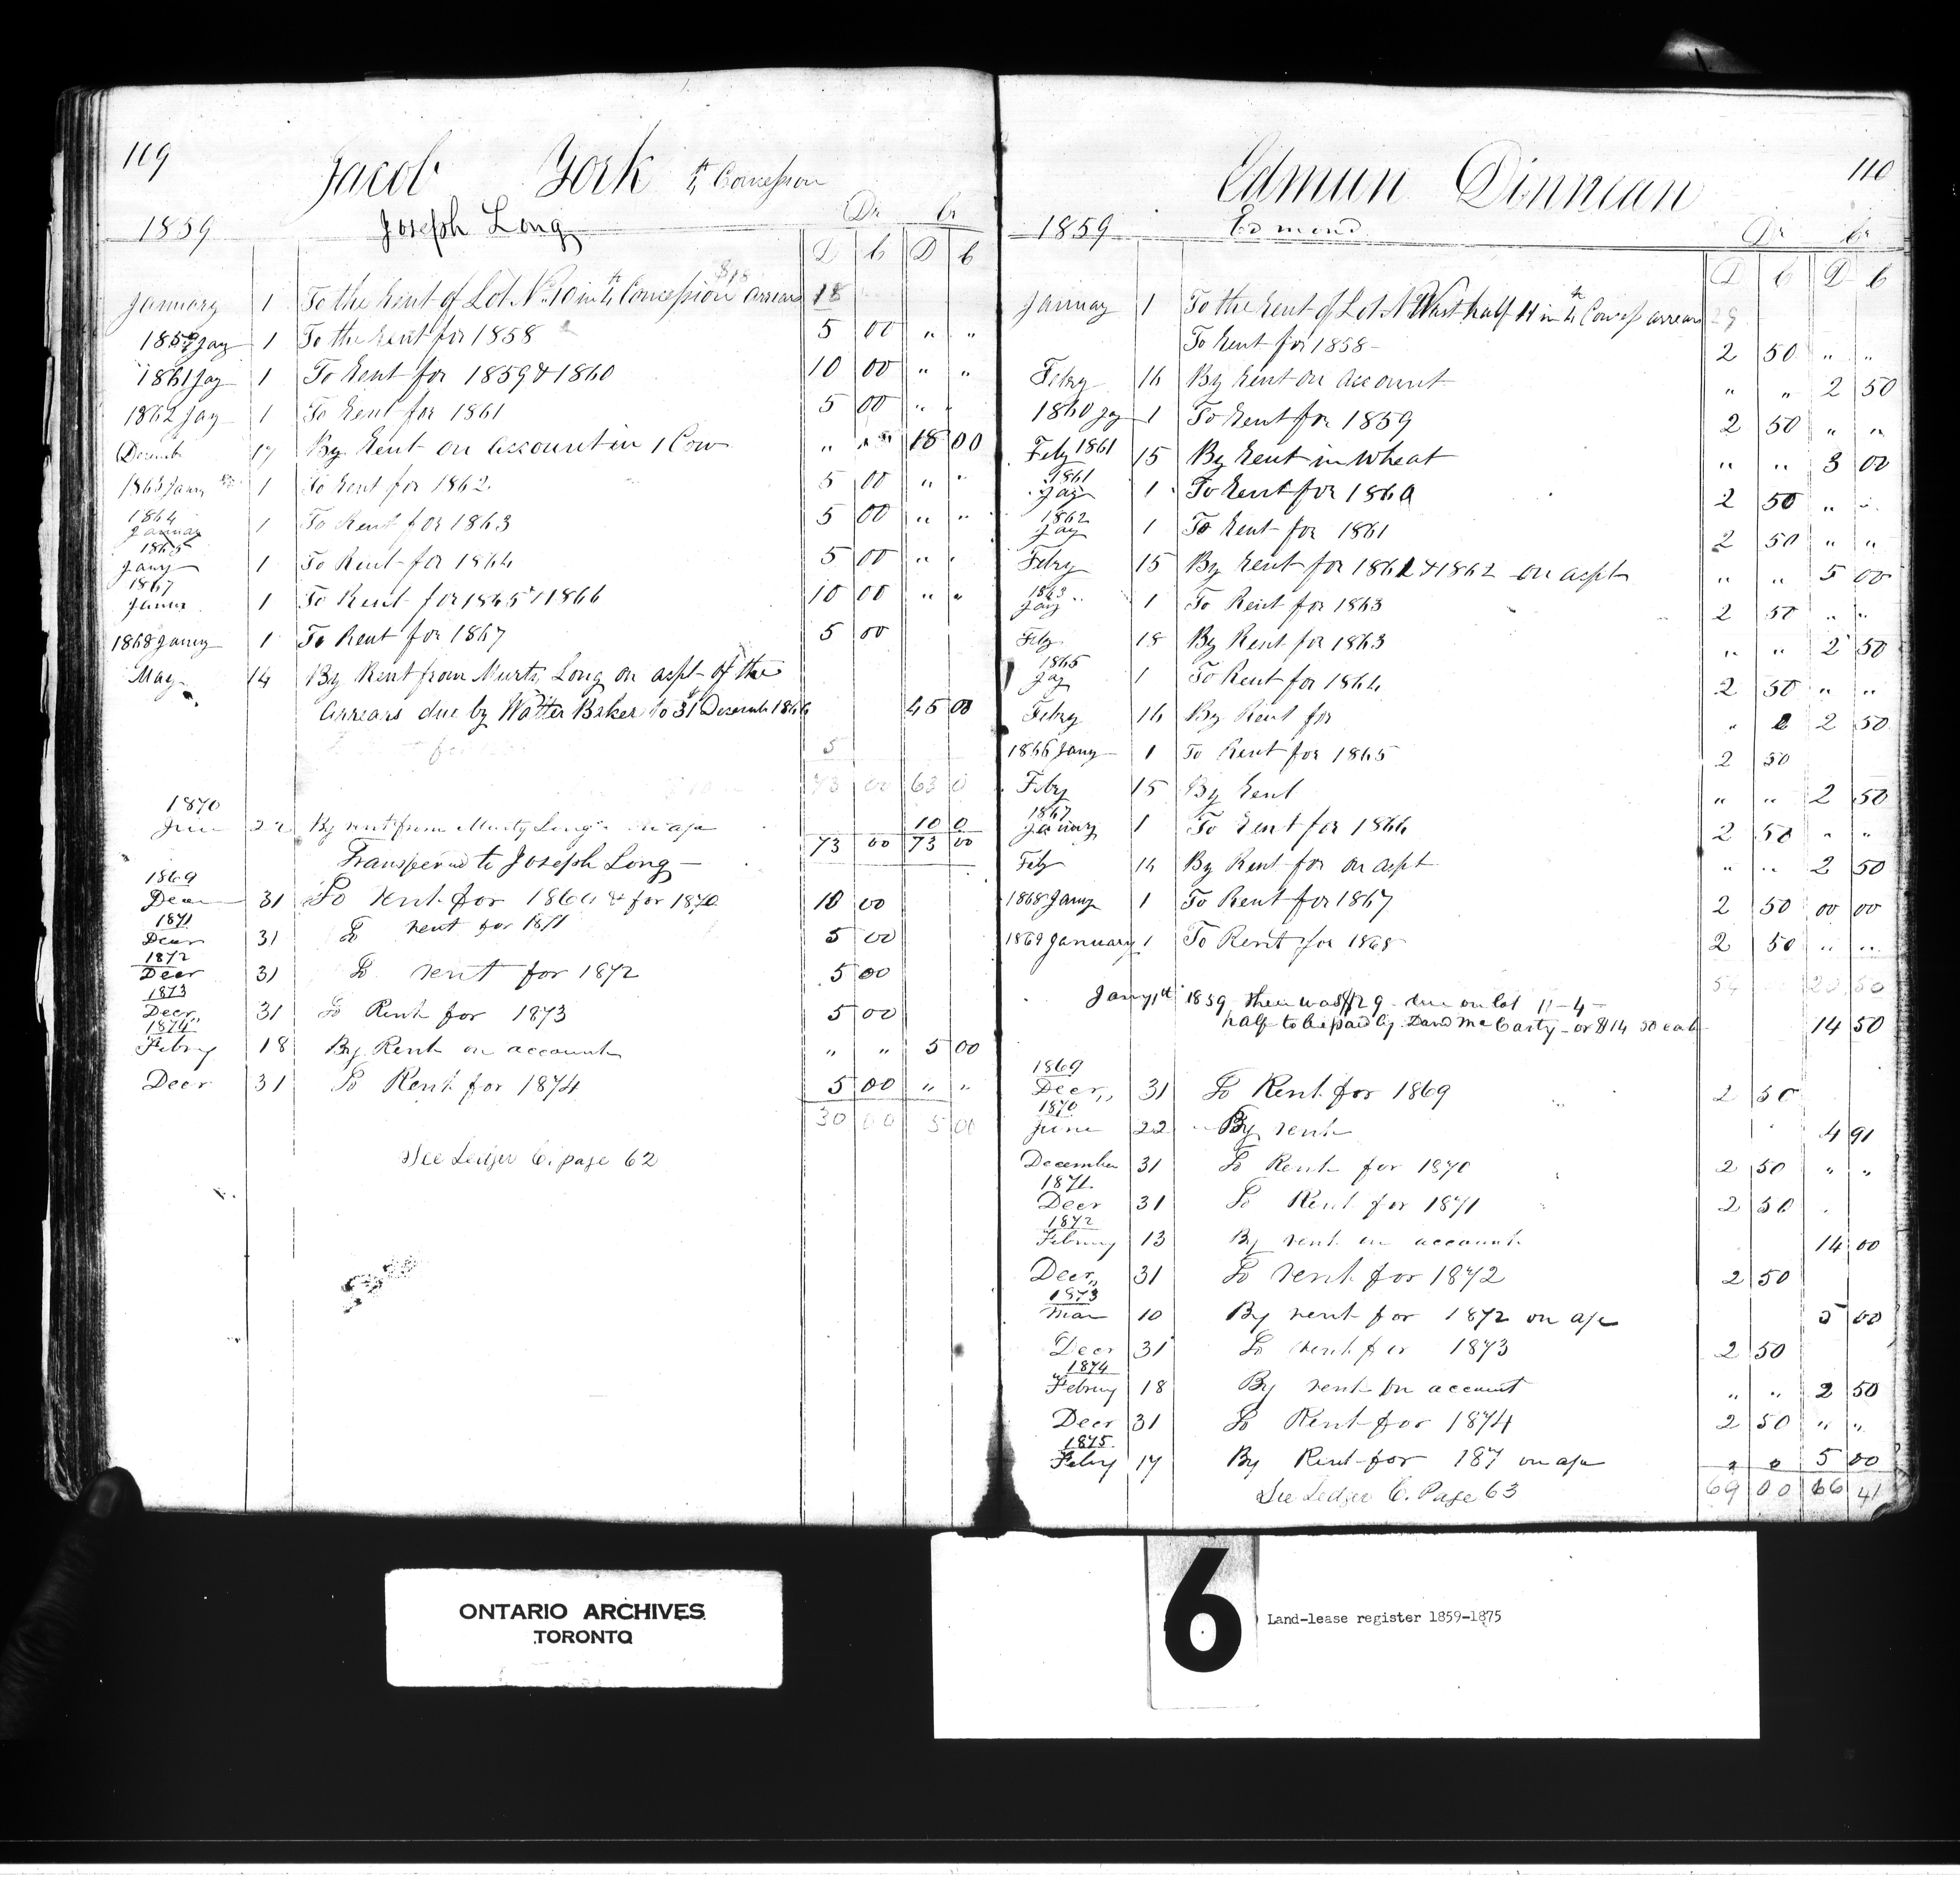 109
Jacob York 4th Concession
1859 Joseph Long Dr Cr
D C D C
January 1 To the Rent of Lot No 10 in 4th Concession arrears $18 18
1859 Jay 1 To the Rent for 1858 5 00 " "
1861 Jay 1 To Rent for 1859 & 1860 10 00 " "
1862 Jay 1 To Rent for 1861 5 00 " "
Decemb 17 By Rent on Account in 1 Cow " " 18 00
1863 Jany 1 To Rent for 1862 5 00 " "
1864
January 1 To Rent for 1863 5 00 " "
1865
Jany 1 To Rent for 1864 5 00 " "
1867
Januar 1 To Rent for 1865 & 1866 10 00 " "
1868 Janry 1 To Rent for 1867 5 00
May 14 By Rent from Murty Long on acpt of the
Arrears due by Walter Baker to 31st Decemb 1866 45 00
5
73 00 63 0
1870
June 22 By rent from Murty Long on a/c 10 0
73 00 73 00
Transferred to Joseph Long
1869
Decem 31 To rent for 1869 & for 1870 10 00
1871
Decer 31 To rent for 1871 5 00
1872
Decer 31 To rent for 1872 5 00
1873
Decer,, 31 To Rent for 1873 5 00
1874,,
Febry 18 By Rent on account " " 5 00
Decer 31 To Rent for 1874 5 00 " "
30 00 5 00
See Ledger C. page 62
110
Edmun Dinnean
1859 Edmond Dr Cr
D C D C
Januay 1 To the Rent of Lot N West half 11 in 4th Concess arrears 29
To Rent for 1858 2 50 " "
Febry 16 By Rent on Account " " 2 50
1860 Jay 1 To Rent for 1859 2 50 " "
Feby 1861 15 By Rent in Wheat " " 3 00
1861
Jay 1 To Rent for 1860 2 50 " "
1862
Jay 1 To Rent for 1861 2 50 " "
Febry 15 By Rent for 1861 & 1862 on acpt " " 5 00
1863
Jany 1 To Rent for 1863 2 50 " "
Feby 18 By Rent for 1863 " " 2 50
1865
Jay 1 To Rent for 1864 2 50 " "
Febry 16 By Rent for " " 2 50
1866 Jany 1 To Rent for 1865 2 50
Febry 15 By Rent " " 2 50
1867
January 1 To Rent for 1866 2 50 " "
Feby 14 By Rent for on acpt " " 2 50
1868 Jany 1 To Rent for 1867 2 50 00 00
1869 January 1 To Rent for 1868 2 50 " "
54 20 50
Jany 1st 1859 there was $29 due on lot 11-4-
half to be paid by David McCarty - or $14 50 each 14 50
1869
Decer,, 31 To Rent for 1869 2 50
1870
June 22 By rent 4 91
December 31 To Rent for 1870 2 50 " "
1871.
Decer 31 To Rent for 1871 2 50
1872
Februry 13 By rent on account 14 00
Decer,, 31 To rent for 1872 2 50
1873
Mar 10 By rent for 1872 on a/c 5 00
Decer 31 To rent for 1873 2 50
1874
Februry 18 By rent on account " " 2 50
Decer 31 To Rent for 1874 2 50 " "
1875.
Febry 17 By Rent for 187 on a/c " " 5 00
See Ledger C. Page 63 69 00 66 41
ONTARIO ARCHIVES
TORONTO
6
Land-lease register 1859-1875